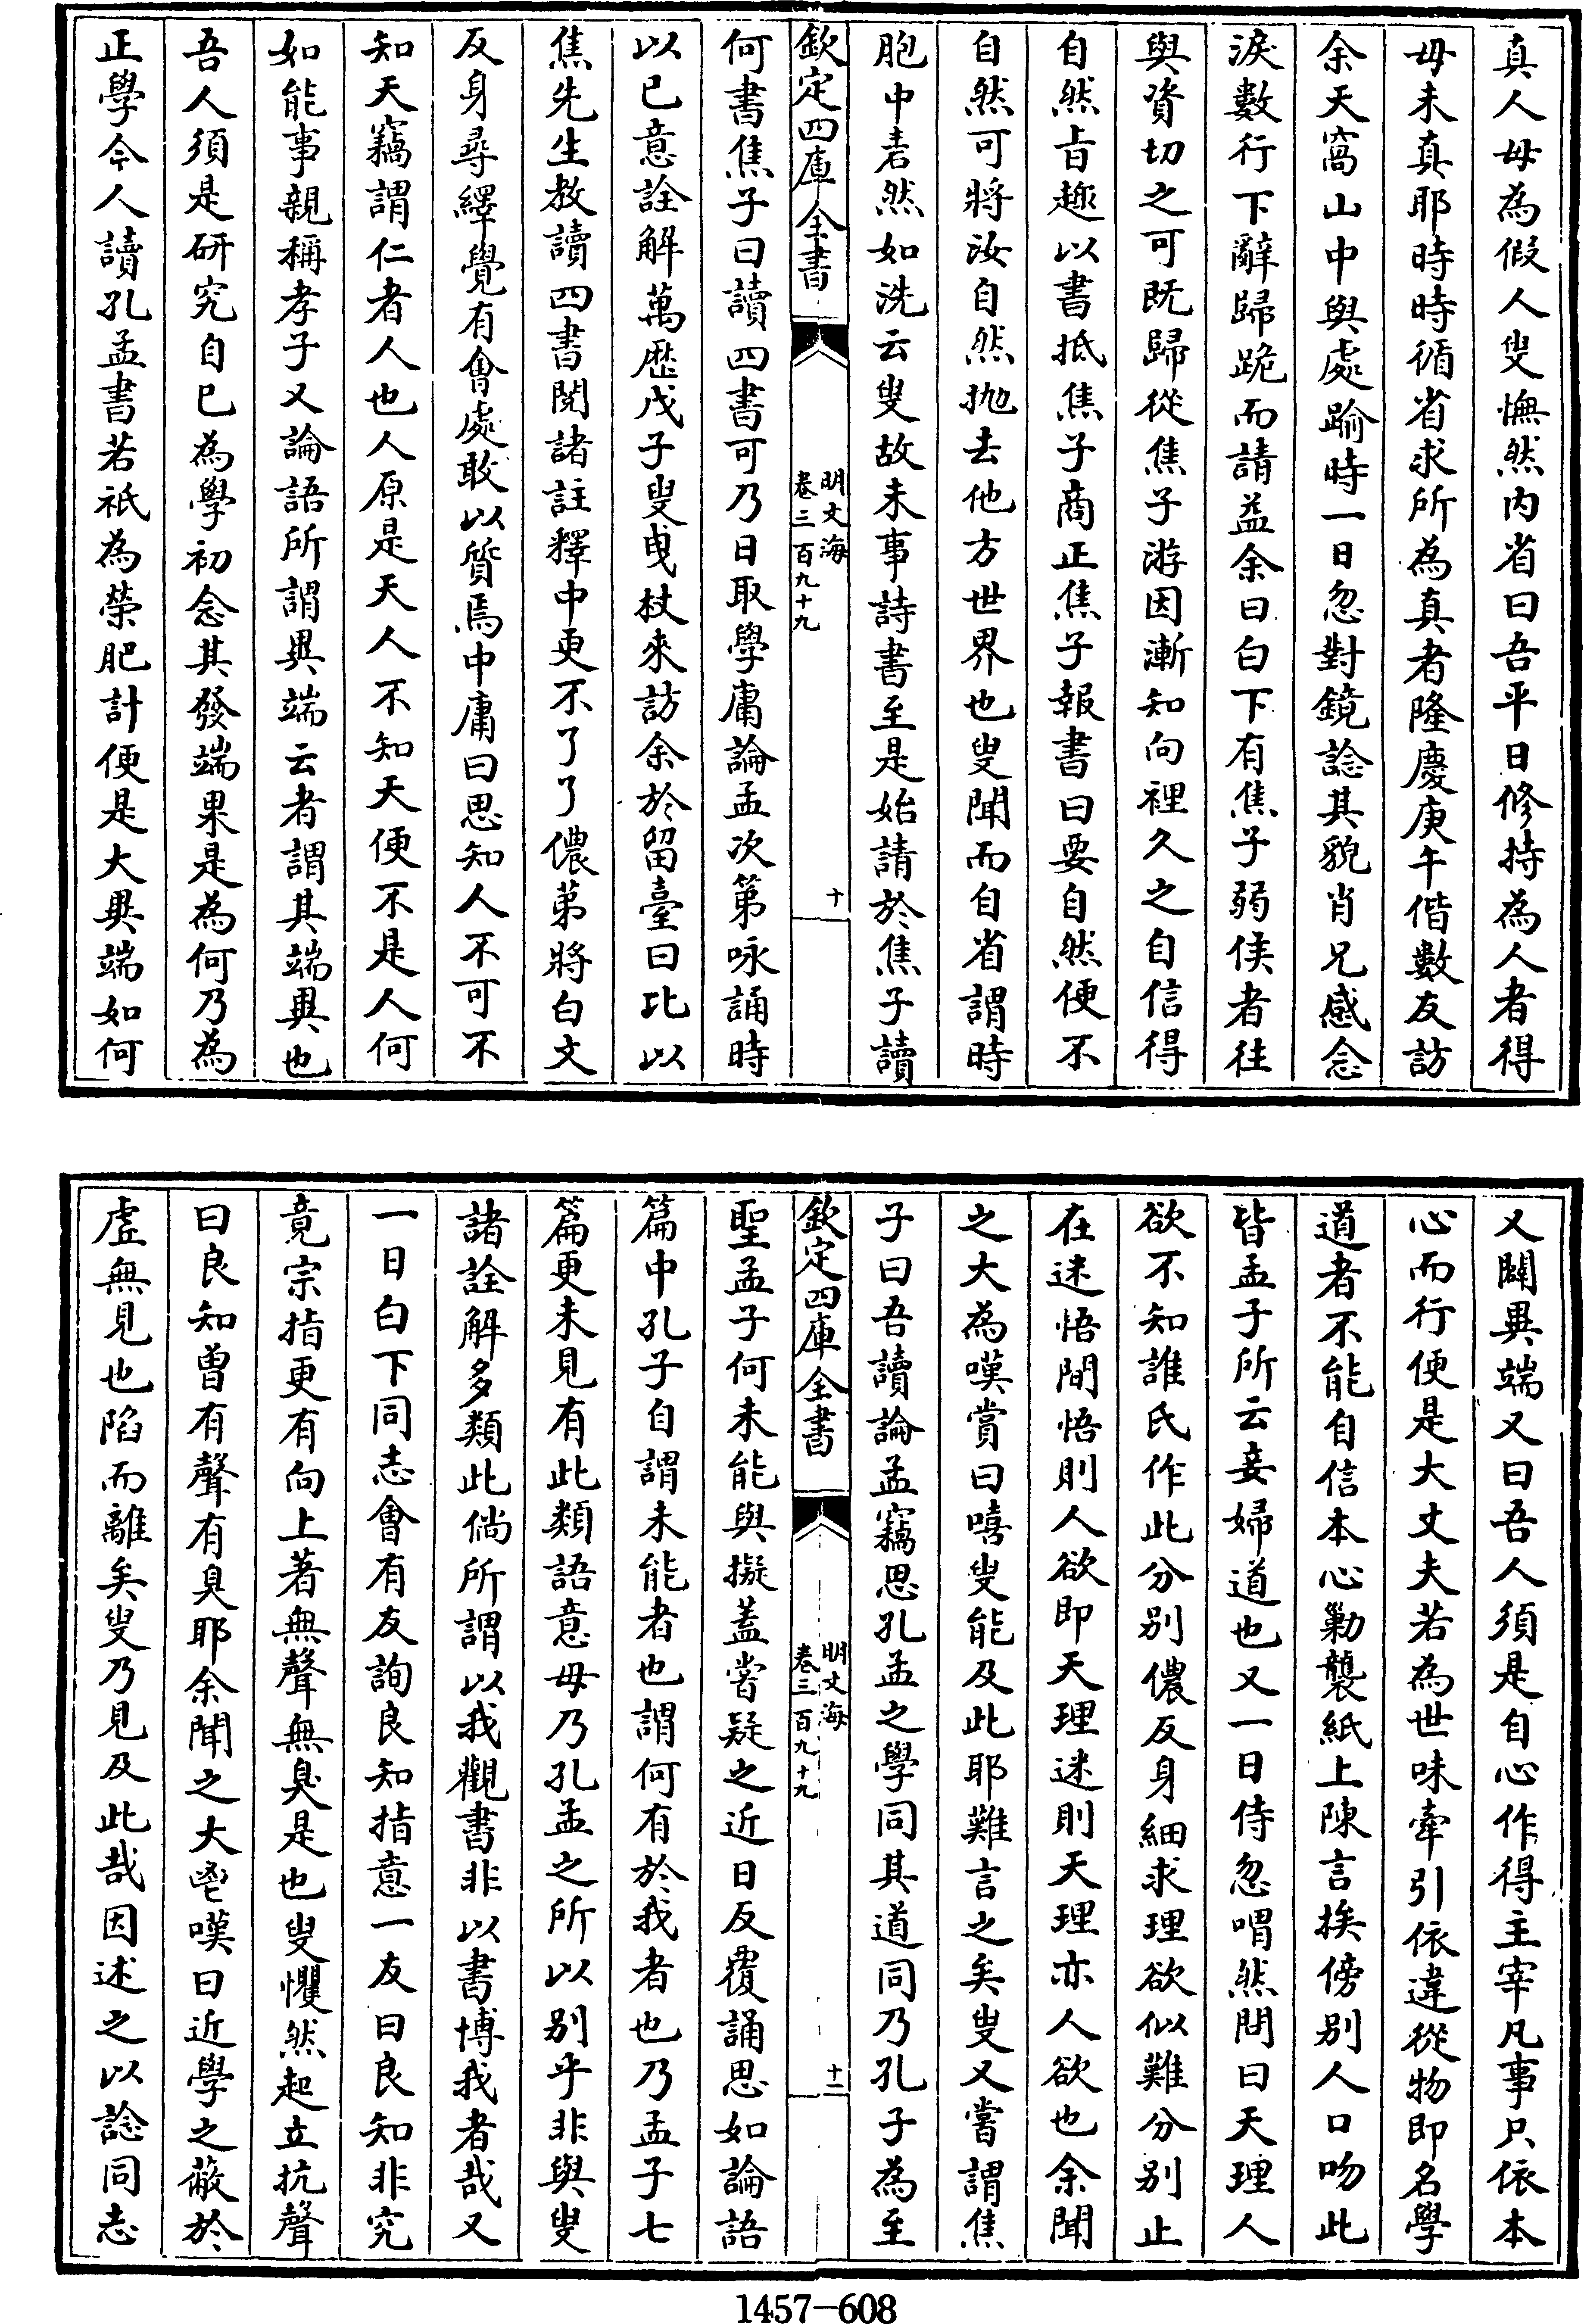 真人毋為假人叟憮然内省曰吾平日修持為人者得
毋未真耶時時循省求所為真者隆慶庚午偕數友訪
余天窩山中與處踰時一日忽對鏡諗其貌肖兄感念
淚數行下辭歸跪而請益余曰白下有焦子弱侯者往
與資切之可既歸從焦子游因漸知向裡久之自信得
自然旨趣以書抵焦子商正焦子報書曰要自然便不
自然可將汝自然抛去他方世界也叟聞而自省謂時
胞中砉然如洗云叟故未事詩書至是始請於焦子讀
欽定四庫全書
明文海
卷三百九十九
十
何書焦子曰讀四書可乃日取學庸論孟次第咏誦時
以已意詮解萬歷戊子叟曳杖來訪余於留臺曰比以
焦先生教讀四書閱諸註釋中更不了了儂苐將白文
反身尋繹覺有會處敢以質焉中庸曰思知人不可不
知天竊謂仁者人也人原是天人不知天便不是人何
如能事親稱孝子又論語所謂異端云者謂其端異也
吾人須是研究自已為學初念其發端果是為何乃為
正學今人讀孔孟書若祇為榮肥計便是大異端如何
又闢異端又曰吾人須是自心作得主宰凡事只依本
心而行便是大丈夫若為世味牽引依違從物即名學
道者不能自信本心勦襲紙上陳言挨傍别人口吻此
皆孟子所云妾婦道也又一日侍忽喟然問曰天理人
欲不知誰氏作此分别儂反身細求理欲似難分别止
在迷悟間悟則人欲即天理迷則天理亦人欲也余聞
之大為嘆賞曰嘻叟能及此耶難言之矣叟又嘗謂焦
子曰吾讀論孟竊思孔孟之學同其道同乃孔子為至
欽定四庫全書
明文海
卷三百九十九
十一
聖孟子何未能與擬蓋嘗疑之近日反覆誦思如論語
篇中孔子自謂未能者也謂何有於我者也乃孟子七
篇更未見有此類語意毋乃孔孟之所以别乎非與叟
諸詮解多類此倘所謂以我觀書非以書博我者哉又
一日白下同志會有友詢良知指意一友曰良知非究
竟宗指更有向上著無聲無臭是也叟懼然起立抗聲
曰良知曽有聲有臭耶余聞之大鬯嘆曰近學之蔽於
虛無見也陷而離矣叟乃見及此哉因述之以諗同志
1457-608